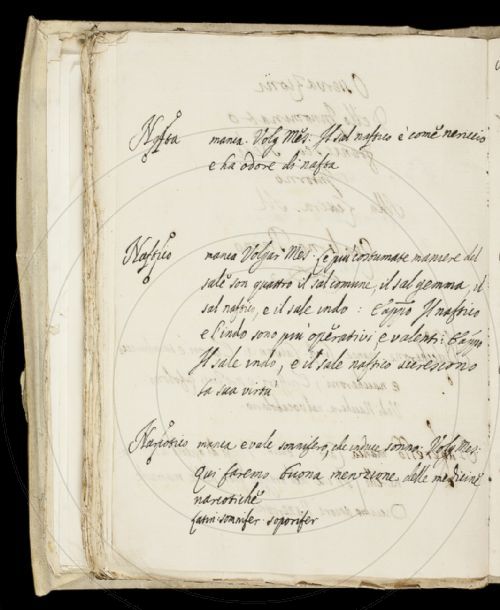 Nafta manca. Volg. Mes: Il sal naftico è come nericcio
e ha odore di nafta
Naftico manca Volgar Mes. Le più costumate maniere del
sale son quattro il sal comune, il sal gemma, il
sal naftico, e il sale indo: E appo Il naftico
e l'indo sono più operativi e valenti: E appo
Il sale indo, e il sale naftico accrescono
la sua virtù
Narcotico manca e vale sonnifero, che induce sonno: Volg. Mes:
Qui faremo buona menzione delle medicine
narcotiche
Latin: somnifer soporifer